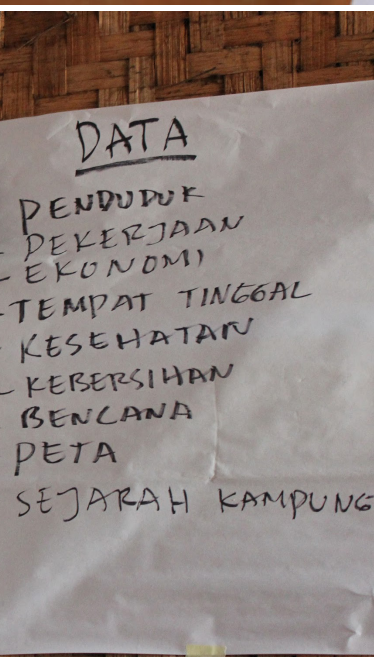 DATA
PENDUDUK
- PEKERJAAN
- EKONOMI
- TEMPAT TINGGAL
- KESEHATAN
- KEBERSIHAN
- BENCANA
PETA
SEJARAH KAMPUNG